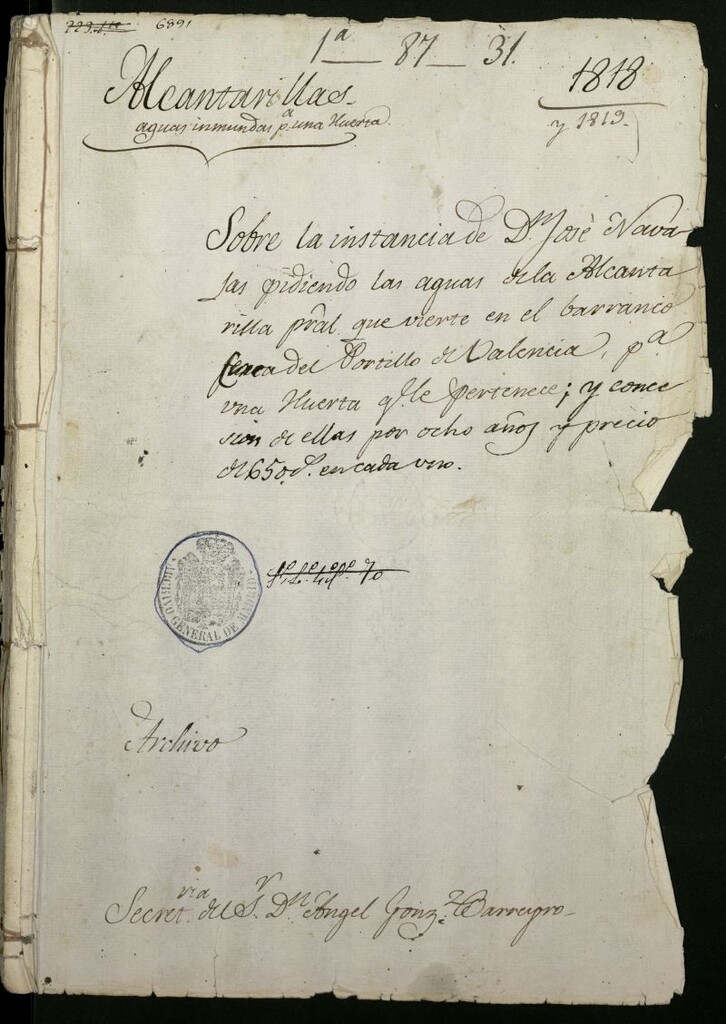 6891
1ª 87 31.
Alcantarillas.
aguas inmundas pª una Huerta.
1818
y 1819.
Sobre la instancia de Dⁿ José Nava
jas pidiendo las aguas de la Alcanta
rilla pral que vierte en el barranco
cerca del Portillo de Valencia, pª
una Huerta q.e le pertenece; y conce
sion de ellas por ocho años y precio
de 650 en cada uno.
ARCHIVO GENERAL DE MADRID
Archivo
Secretria del Sr Dⁿ Angel Gonzz Barreyro